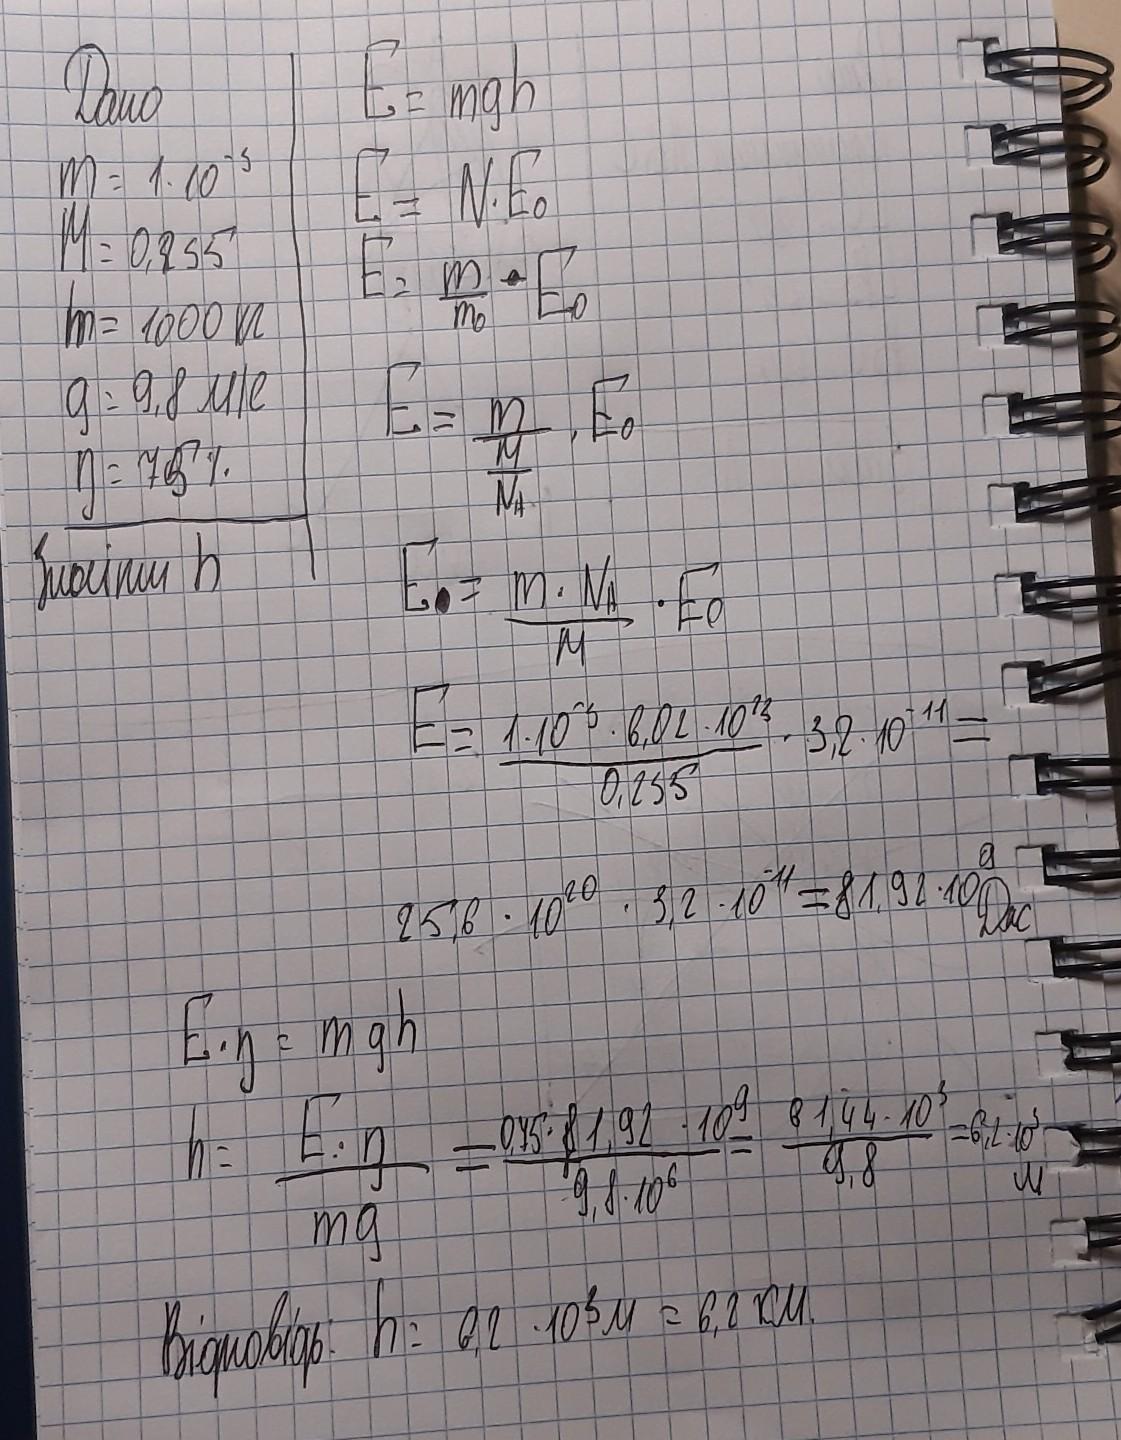 Дано
m = 1·10⁻³
M = 0,255
m = 1000 кг
g = 9,8 м/с
η = 75%
Знайти h
E = mgh
E = N·E₀
E = m/m₀ · E₀
E = m/(M/N_A) · E₀
E = (m·N_A)/M · E₀
E = (1·10⁻³·6,02·10²³)/0,255 · 3,2·10⁻¹¹ =
25,6·10²⁰ · 3,2·10⁻¹¹ = 81,92·10⁹ Дж
E·η = mgh
h = (E·η)/(mg) = (0,75·81,92·10⁹)/(9,8·10⁶) = (61,44·10³)/9,8 = 6,2·10³ м
Відповідь: h = 6,2·10³ м = 6,2 км.